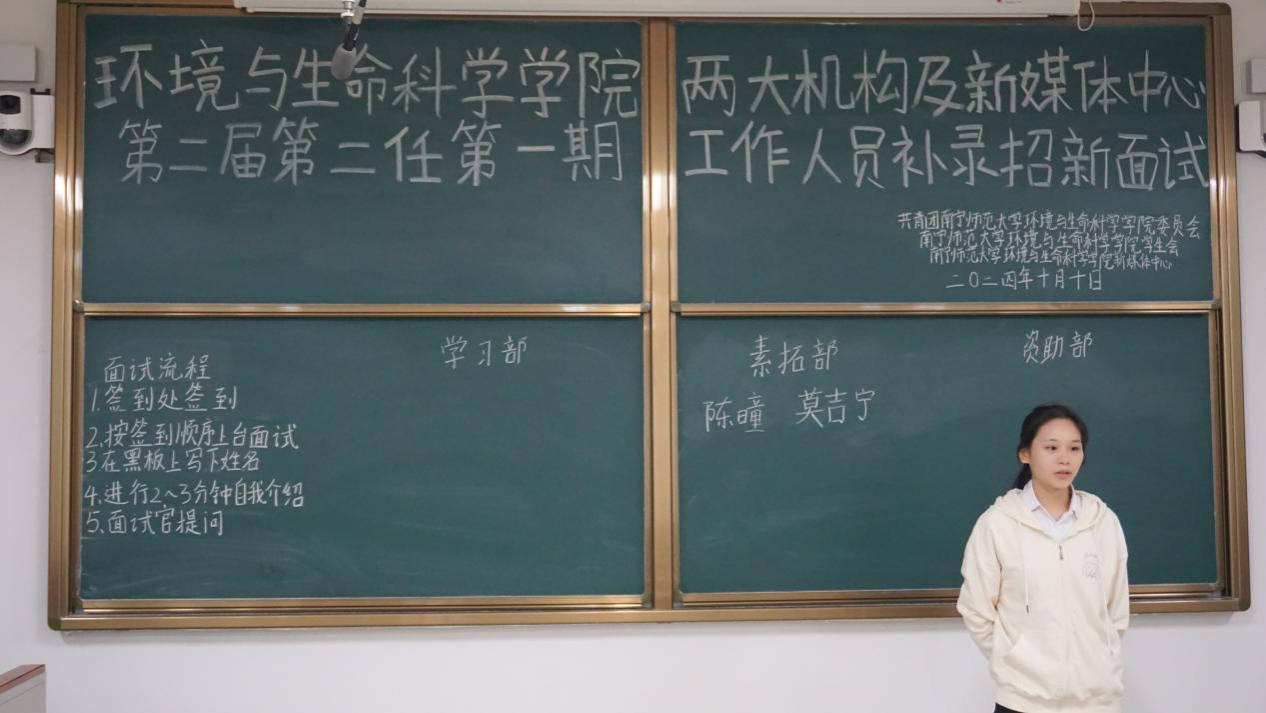 环境与生命科学学院
第二届第二任第一期
两大机构及新媒体中心
工作人员补录招新面试
共青团南宁师范大学环境与生命科学学院委员会
南宁师范大学环境与生命科学学院学生会
南宁师范大学环境与生命科学学院新媒体中心
二〇二四年十月十日
面试流程
1.签到处签到
2.按签到顺序上台面试
3.在黑板上写下姓名
4.进行2~3分钟自我介绍
5.面试官提问
学习部
素拓部
陈曈 莫吉宁
资助部